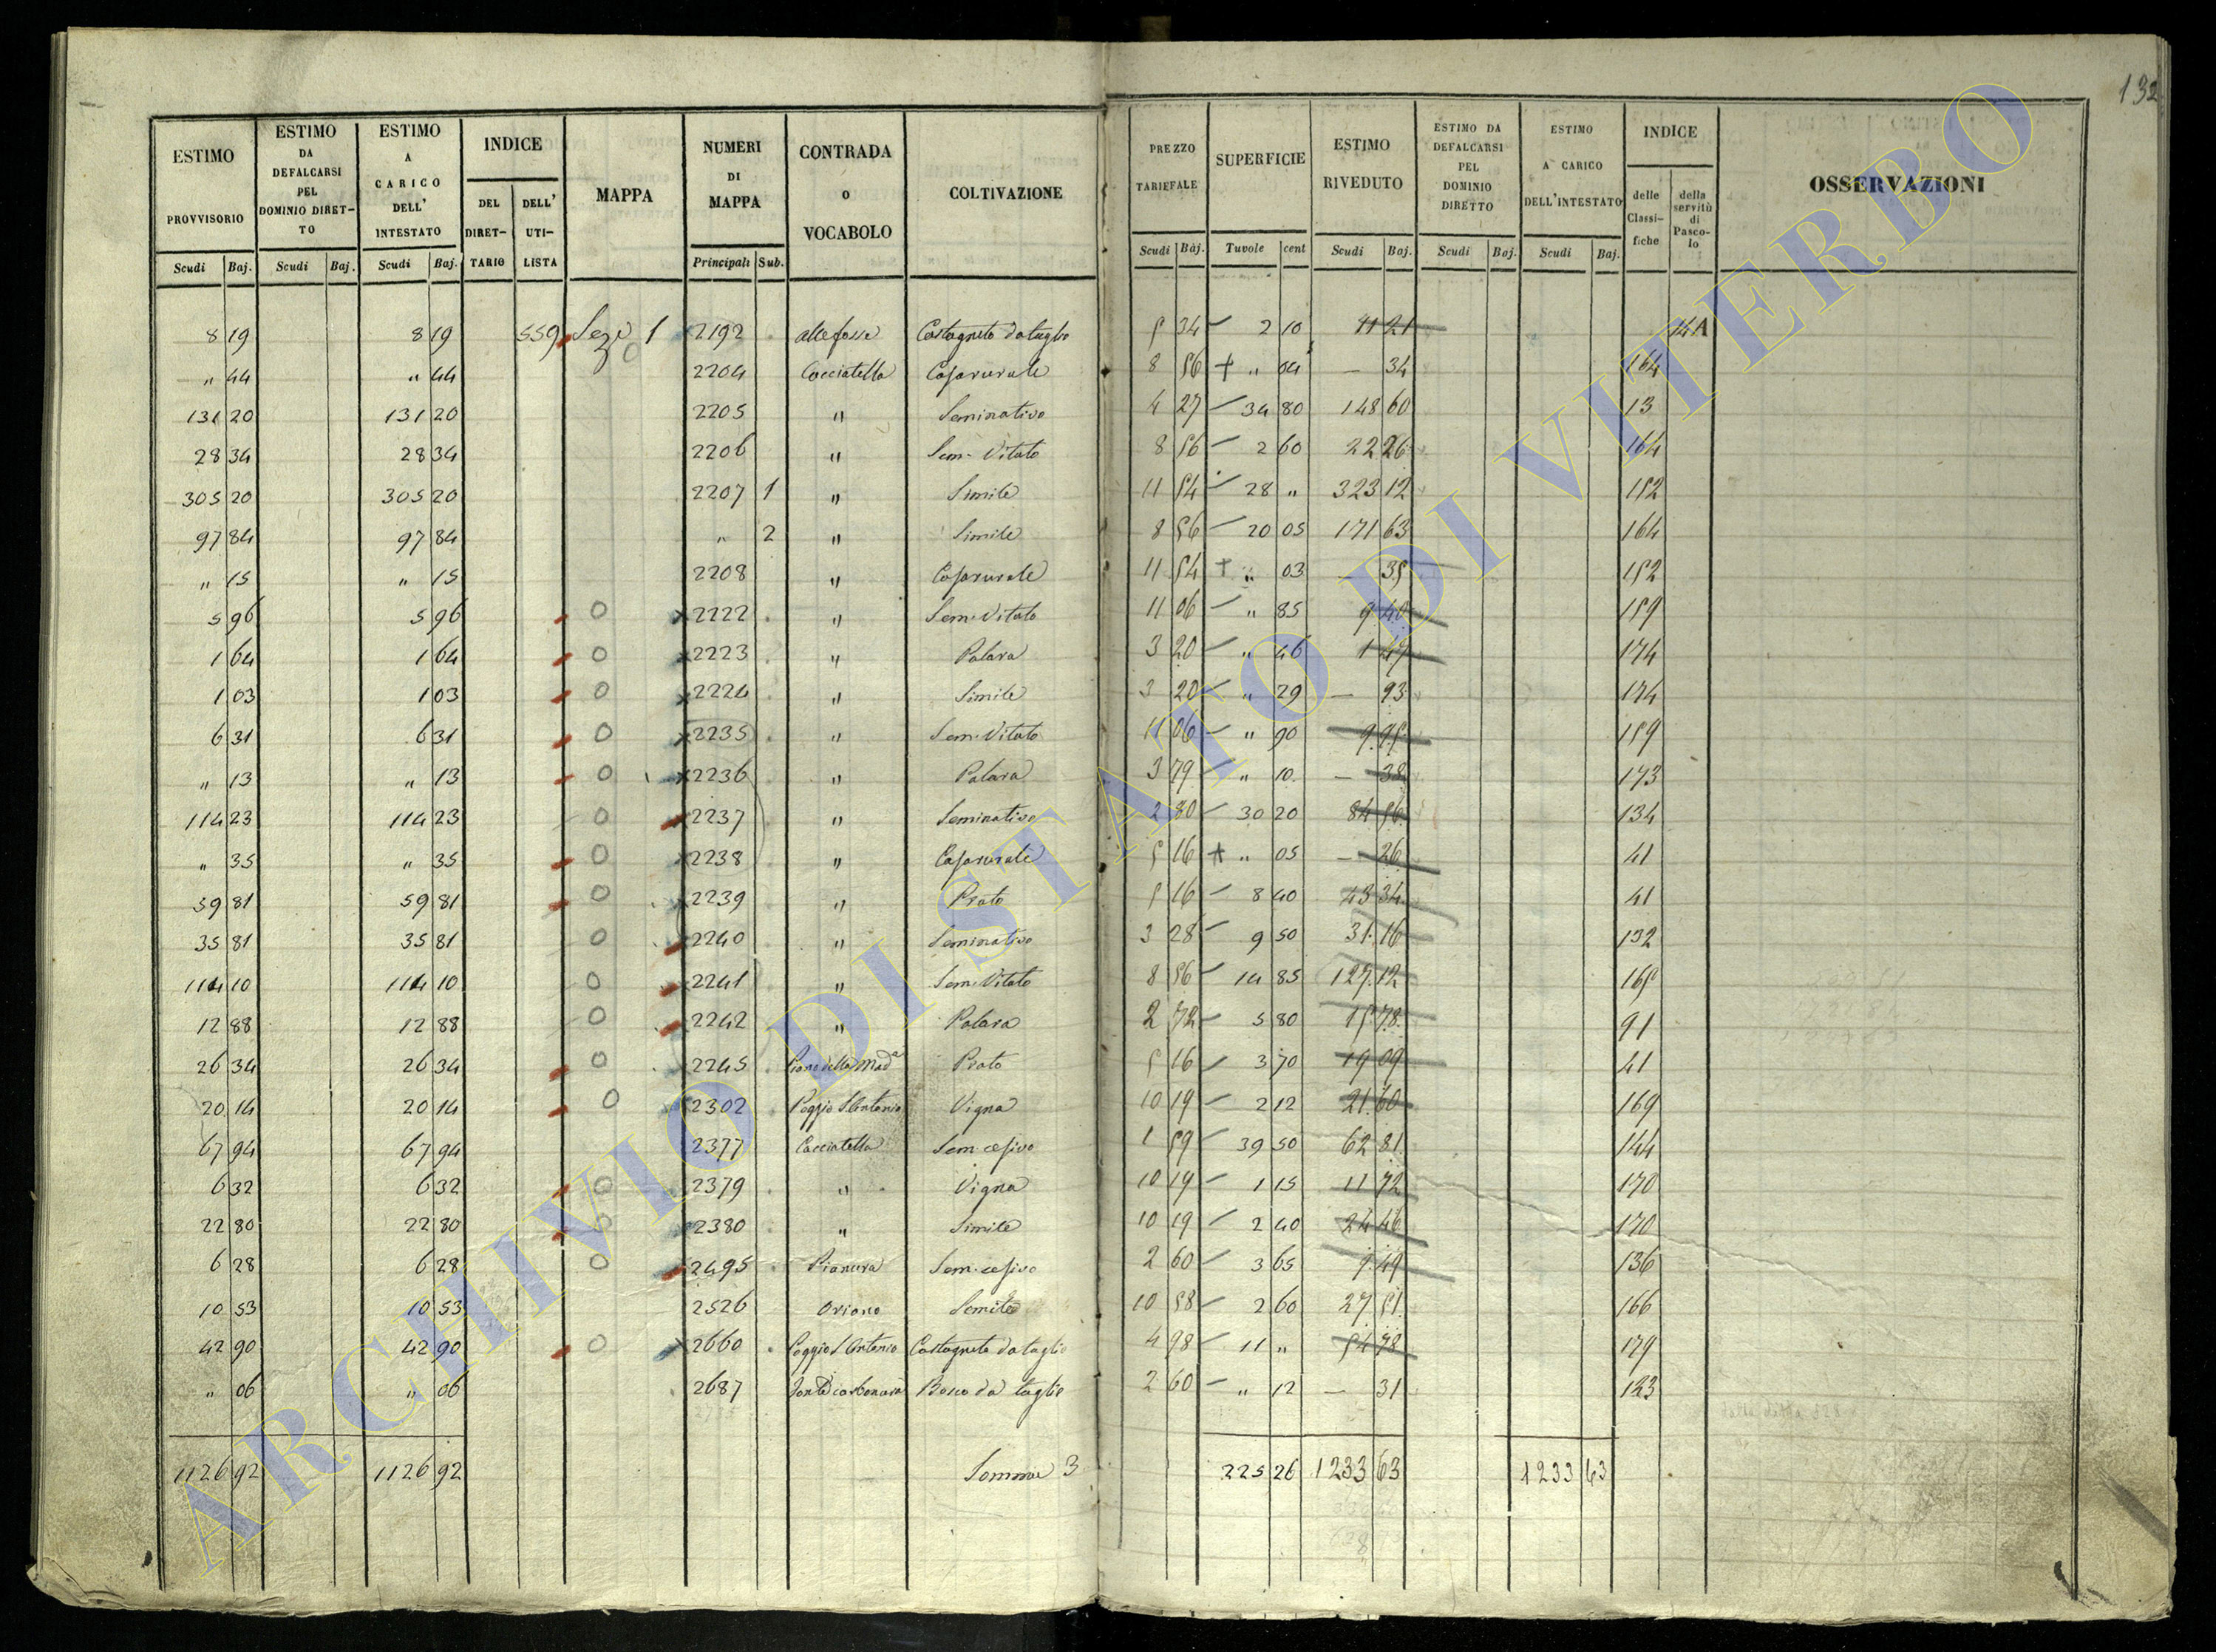 132
ESTIMO PROVVISORIO
ESTIMO DA DEFALCARSI PEL DOMINIO DIRET- TO
ESTIMO A CARICO DELL' INTESTATO
INDICE
DEL DIRET- TARIO
DELL' UTI- LISTA
MAPPA
NUMERI DI MAPPA
CONTRADA o VOCABOLO
COLTIVAZIONE
PREZZO TARIFFALE
SUPERFICIE
ESTIMO RIVEDUTO
ESTIMO DA DEFALCARSI PEL DOMINIO DIRETTO
ESTIMO A CARICO DELL'INTESTATO
INDICE
delle Classi- fiche
della servitù di Pasco- lo
OSSERVAZIONI
Scudi Baj. Scudi Baj. Scudi Baj. Principali Sub. Scudi Baj. Tavole cent Scudi Baj. Scudi Baj. Scudi Baj.
8 19 8 19 559 Sez. 1 2192 Castagneto da taglio 5 34 2 10 11 21 14A
" 44 " 44 2204 Cacciatella Casa rurale 8 56 + " 04 — 34 164
131 20 131 20 2205 " Seminativo 4 27 34 80 148 60 13
28 34 28 34 2206 " Sem. Vitato 8 56 2 60 22 26 164
305 20 305 20 2207 1 " Simile 11 54 28 " 323 12 152
97 84 97 84 " 2 " Simile 8 56 20 05 171 63 164
" 15 " 15 2208 " Casa rurale 11 54 + " 03 — 35 152
5 96 5 96 0 2222 " Sem. Vitato 11 06 " 85 9 40 159
1 64 1 64 0 2223 " 3 20 " 46 1 47 174
1 03 1 03 0 2224 " Simile 3 20 " 29 — 93 174
6 31 6 31 0 2235 " Sem. Vitato 11 06 " 90 9 95 159
" 13 " 13 0 2236 " 3 79 " 10 — 38 173
114 23 114 23 0 2237 " Seminativo 2 80 30 20 84 56 134
" 35 " 35 0 2238 " Casa rurale 5 16 + " 05 — 26 41
59 81 59 81 0 2239 " Prato 5 16 8 40 43 34 41
35 81 35 81 0 2240 " Seminativo 3 28 9 50 31 16 132
114 10 114 10 0 2241 " Sem. Vitato 8 56 14 85 127 12 165
12 88 12 88 0 2242 " 2 72 5 80 15 78 91
26 34 26 34 0 2245 Piano della Mad.a Prato 5 16 3 70 19 09 41
20 14 20 14 0 2302 Poggio S. Antonio Vigna 10 19 2 12 21 60 169
67 94 67 94 2377 Cacciatella Sem. cesivo 1 59 39 50 62 81 144
6 32 6 32 0 2379 " Vigna 10 19 1 15 11 72 170
22 80 22 80 0 2380 " Simile 10 19 2 40 24 46 170
6 28 6 28 0 2495 Pianura Sem. cesivo 2 60 3 65 9 49 136
10 53 10 53 2526 Oriano 10 58 2 60 27 51 166
42 90 42 90 0 2660 Poggio S. Antonio Castagneto da taglio 4 98 11 " 54 78 179
" 06 " 06 2687 Bosco da taglio 2 60 " 12 — 31 123
1126 92 1126 92 Somma 3 225 26 1233 63 1233 63
ARCHIVIO DI STATO DI VITERBO